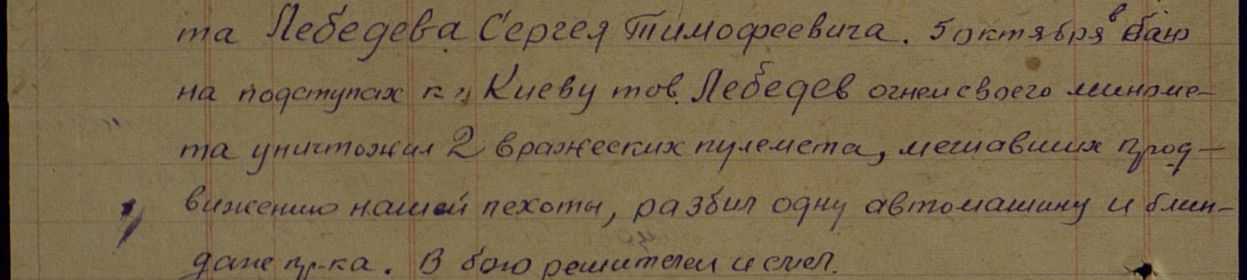 та Лебедева Сергея Тимофеевича. 5 октября в бою
на подступах к г. Киеву тов. Лебедев огнем своего миноме-
та уничтожил 2 вражеских пулемета, мешавших прод-
вижению нашей пехоты, разбил одну автомашину и блин-
даже пр-ка. В бою решителен и смел.